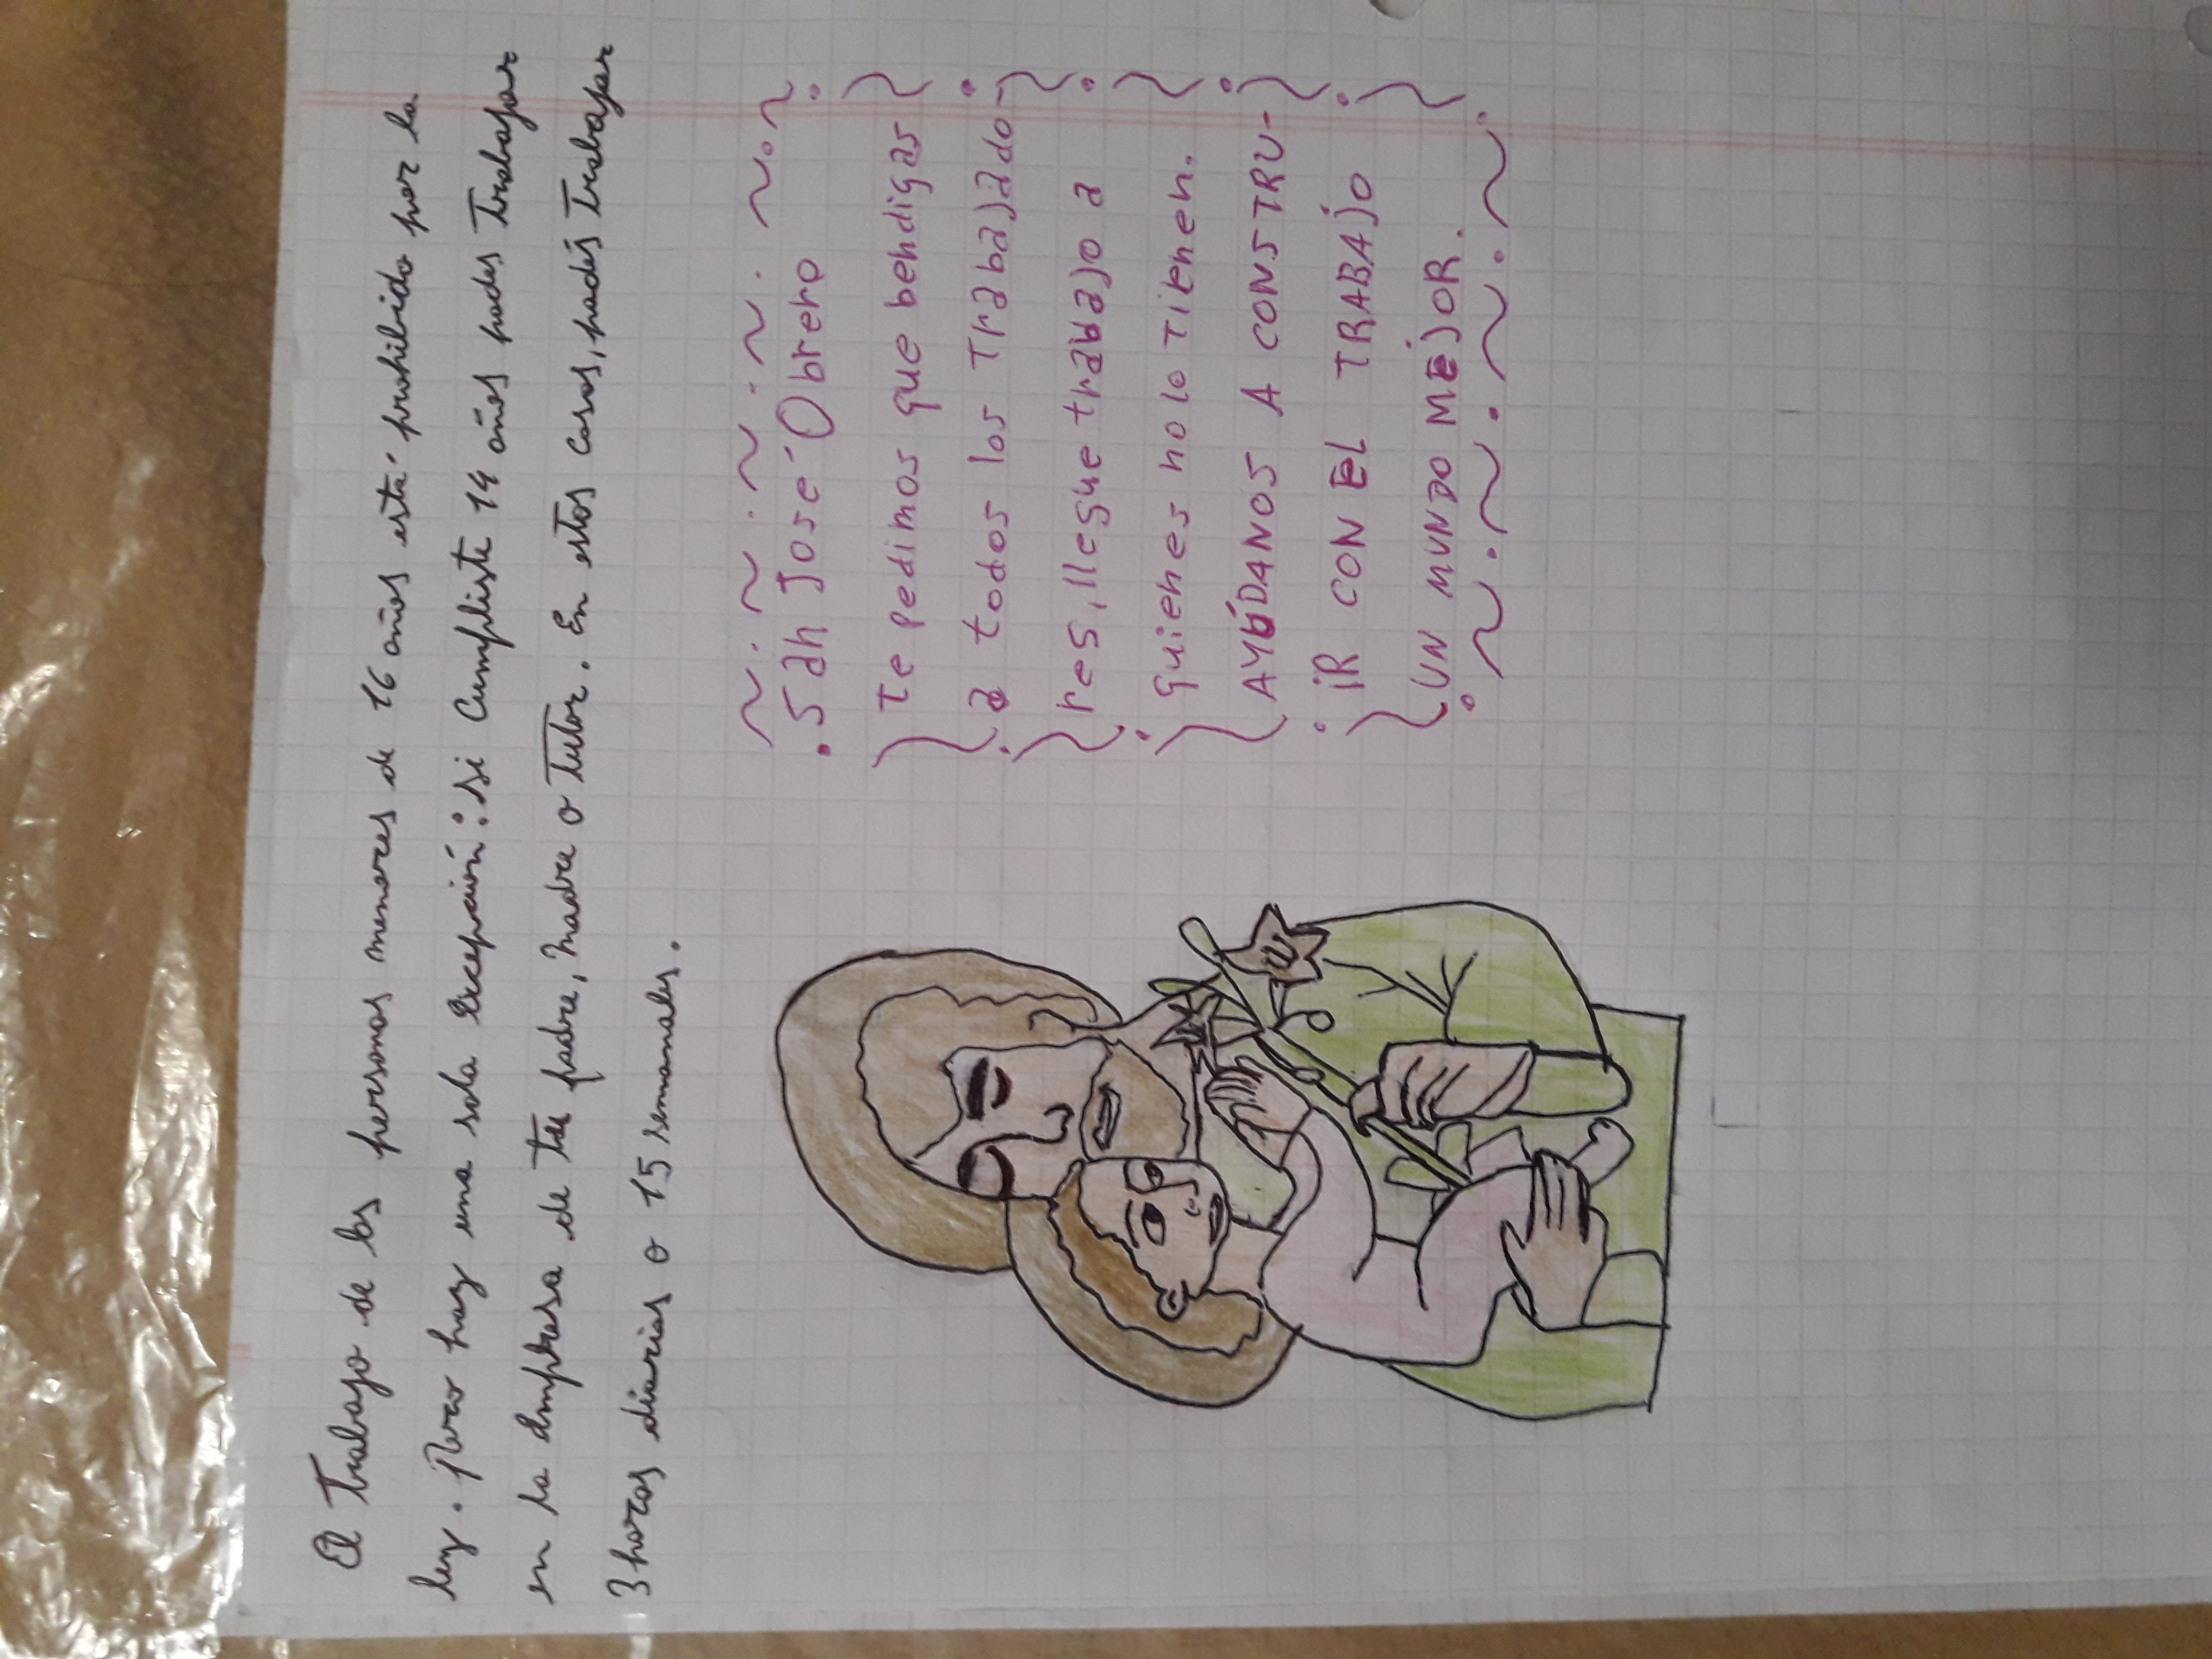 El Trabajo de las personas menores de 16 años está prohibido por la
ley. Pero hay una sola excepción: si Cumpliste 14 años podes Trabajar
en la empresa de tu padre, madre o Tutor. En estos casos, podés trabajar
3 horas diarias o 15 semanales.
San José Obrero
Te pedimos que bendigas
a todos los Trabajado-
res, llegue trabajo a
quienes no lo tienen.
AYÚDANOS A CONSTRU-
IR CON EL TRABAJO
UN MUNDO MEJOR.